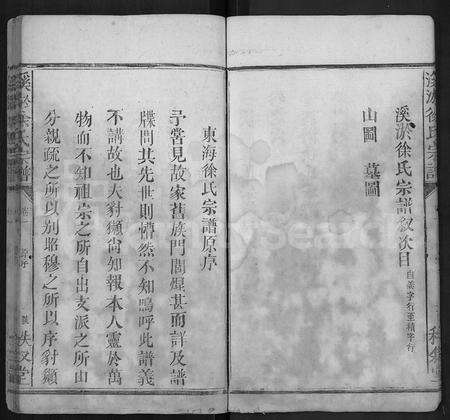 溪淤徐氏宗譜
溪淤徐氏宗譜敘次目 自義字行至積字行
山圖 墓圖
東海徐氏宗譜原序
予嘗見故家舊族門閭煜甚而詳及譜
牒問其先世則懵然不知嗚呼此譜義
不講故也夫豺獺尚知報本人靈於萬
物而不知祖宗之所自出支派之所由
分親疏之所以別昭穆之所以序豺獺
溪淤徐氏宗譜
原序